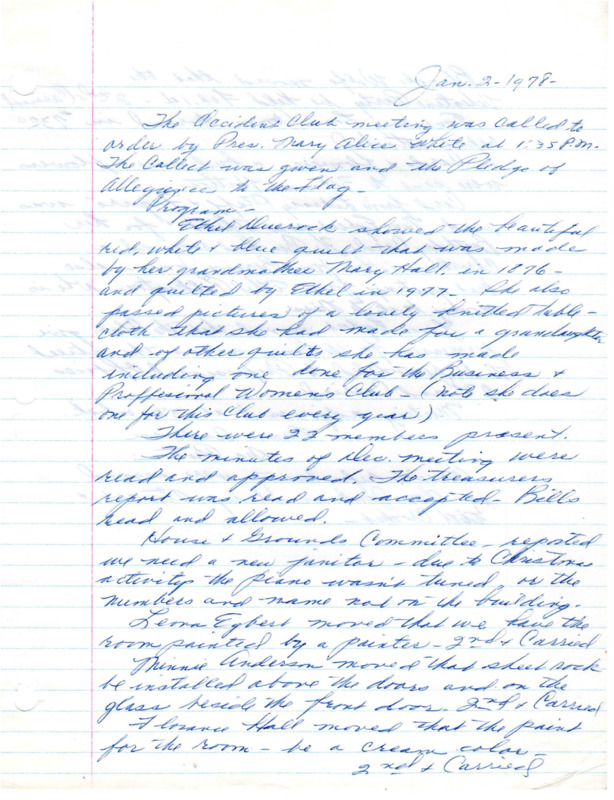 Jan. 2-1978-
The Occident Club meeting was called to
order by Pres. Mary Alice White at 1:35 P.M.
The Collect was given and the Pledge of
Allegience to the Flag-
Program-
Ethel showed the beautiful
red, white & blue quilt that was made
by her grandmother Mary Hall, in 1876-
and quilted by Ethel in 1977- She also
passed pictures of a lovely knitted table-
cloth that she had made for a grandaughter
and of other quilts she has made
including one done for the Business &
Proffesional Women's Club- (note she does
one for this Club every year)
There were 22 members present.
The minutes of Dec. meeting were
read and approved. The treasurers
report was read and accepted- Bills
read and allowed.
House & Grounds Committee- reported
we need a new janitor - due to Christmas
activity, the piano wasn't tuned, or the
numbers and name not on the building.
Leona Egbert moved that we have the
room painted by a painter- 2nd & Carried
Minnie Anderson moved that sheet rock
be installed above the doors and on the
glass beside the front door. 2nd & Carried
Florance Hall moved that the paint
for the room - be a cream color-
2nd & Carried